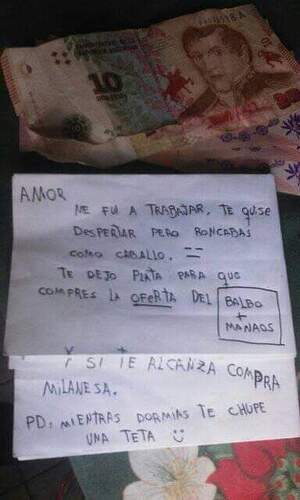 10
AMOR
ME FUI A TRABAJAR, TE QUISE
DESPERTAR PERO RONCABAS
COMO CABALLO. ==
TE DEJO PLATA PARA QUE
COMPRES LA OFERTA DEL
BALBO
+
MANAOS
Y SI TE ALCANZA COMPRA
MILANESA.
PD: MIENTRAS DORMIAS TE CHUPE
UNA TETA :)